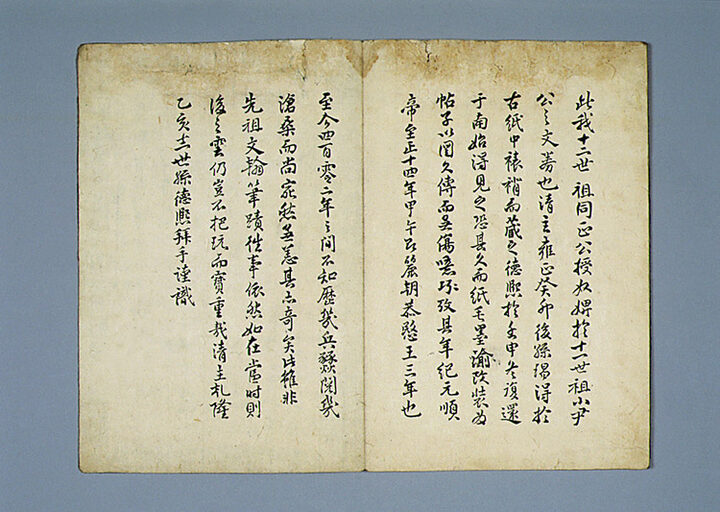 此我十二世祖同正公授奴婢於十一世祖小尹
公之文券也清主雍正癸卯後孫得於
古紙中褙補而藏之德熙於壬申冬復還
于南始得見之恐其久而紙毛墨渝改裝為
帖子以圖久傳而無傷噫攷其年紀元順
帝至正十四年甲午即麗朝恭愍王三年也
至今四百零二年之間不知歷幾兵燹閱幾
滄桑而尚宛然無恙其亦奇矣此雖非
先祖文翰筆蹟徃事依然如在當時則
後之雲仍豈不把玩而寶重哉清主乾隆
乙亥世孫德熙拜手謹識